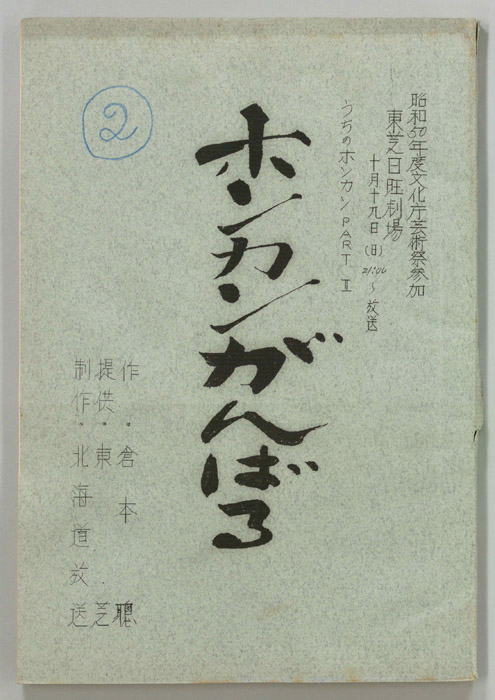 昭和50年度文化庁芸術祭参加
東芝日旺劇場
十月十九日(日)21:00～放送
うちのホンカンPART II
ホンカンがんばる
②
作・倉本 聰
提供・東芝
制作・北海道放送